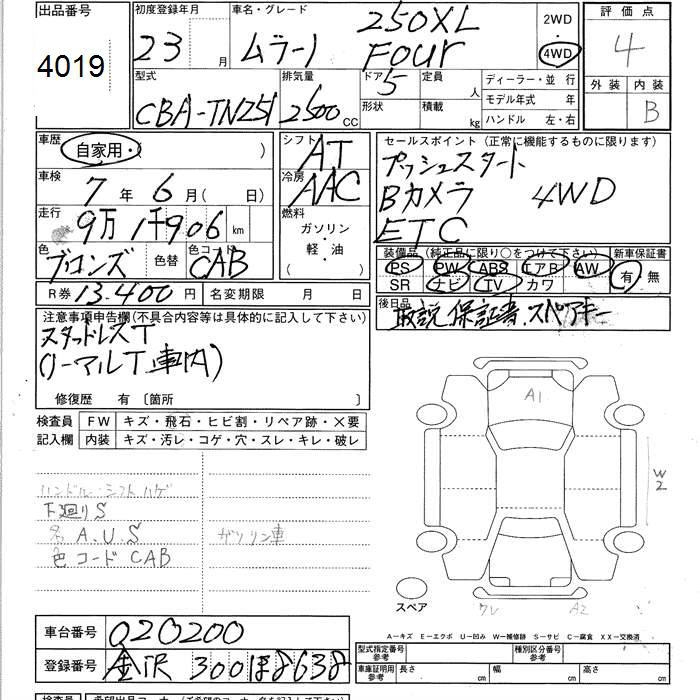 出品番号 初度登録年月 車名・グレード 2WD 評価点
4019 23 月 ムラーノ 250XL FOUR 4WD 4
型式 排気量 ドア 定員 ディーラー・並行 外装 内装
CBA-TNZ51 2500 CC 5 人 モデル年式 年 B
形状 積載 kg ハンドル 左・右
車歴 自家用・( ) シフト AT セールスポイント (正常に機能するものに限ります)
車検 7年6月( 日) 冷房 AAC プッシュスタート
Bカメラ 4WD
走行 9万1千906 km 燃料 ETC
ガソリン・軽・油
( )
色 ブロンズ 色替 色コード CAB 装備品 (純正品に限り○をつけて下さい) 新車保証書
PS PW ABS エアB AW 有・無
SR ナビ TV カワ
R券 13.400円 名変期限 月 日
後日品 取説、保証書、スペアキー
注意事項申告欄(不具合内容等は具体的に記入して下さい)
スタッドレスT
(ノーマルT 車内)
修復歴 有 〔箇所 〕
検査員 FW キズ・飛石・ヒビ割・リペア跡・×要
記入欄 内装 キズ・汚レ・コゲ・穴・スレ・キレ・破レ
A1
W2
ハンドル・シフトハゲ
下廻りS
A.U.S ガソリン車
色コード CAB
スペア
A2
A−キズ E−エクボ U−凹み W−補修跡 S−サビ C−腐食 XX−交換済
車台番号 020200
型式指定番号 参考 種別区分番号 参考
登録番号 金沢 300 ほ 8638
車庫証明用 参考 長さ cm 幅 cm 高さ cm